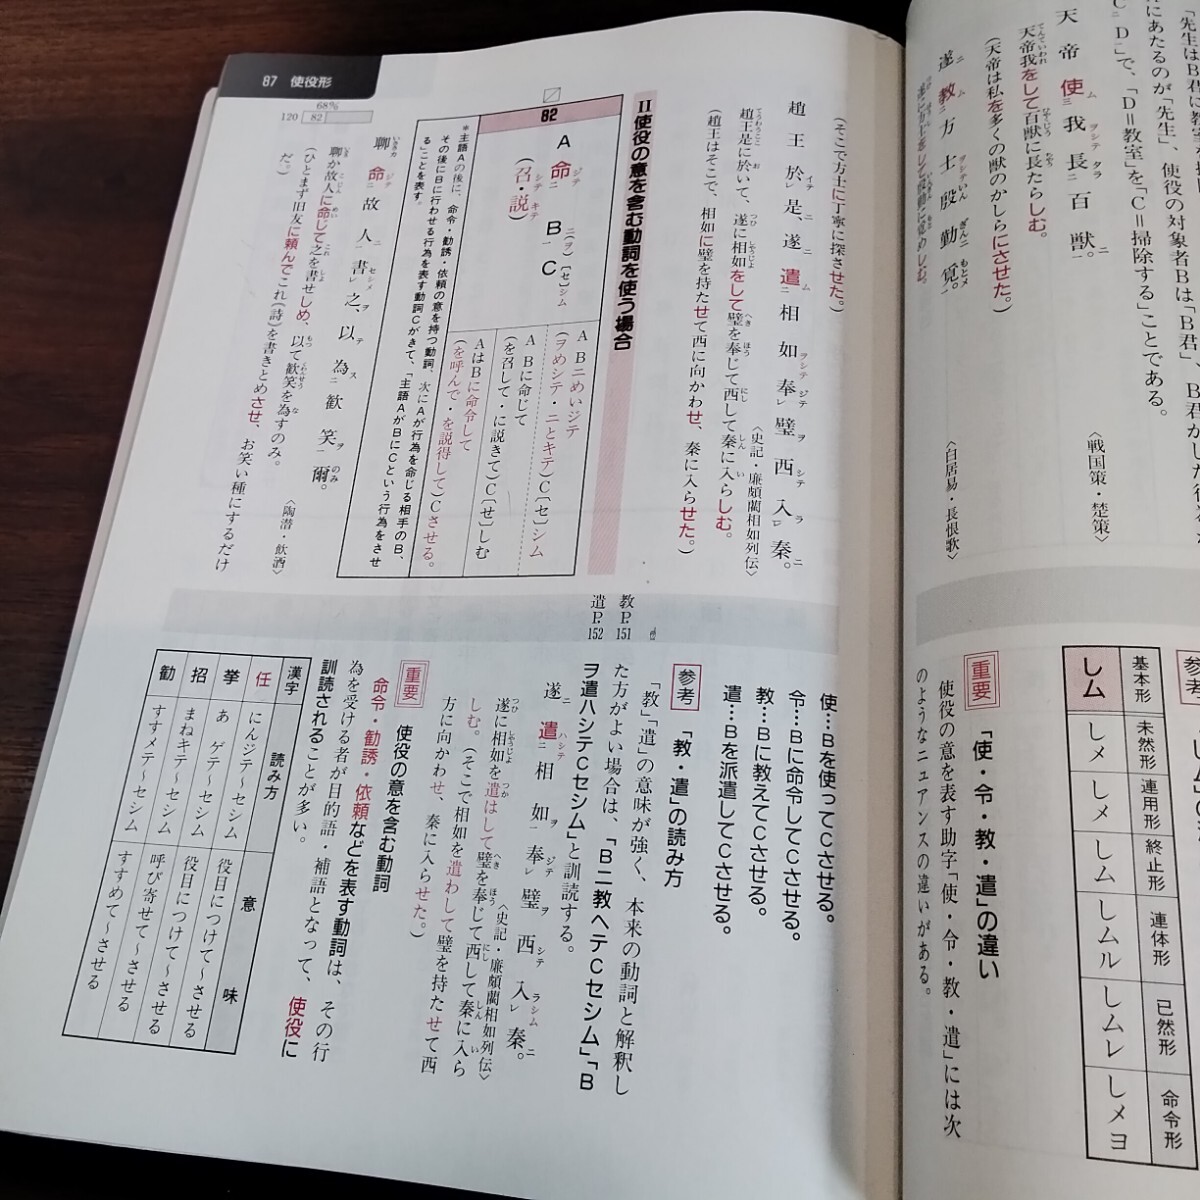 「先生はB君に教
にあたるのが「先生」、使役の対象者Bは「B君」、B君が
C ニ D」で、「D＝教室」を「C＝掃除する」ことである。
天帝使ムニ我ヲシテ長タラニ百獣一。
天帝我をして百獣に長たらしむ。
〈戦国策・楚策〉
(天帝は私を多くの獣のかしらにさせた。)
遂ニ教ム二方士ヲシテ殷勤ニ覓メ一。
〈白居易・長恨歌〉
基本形
未然形
連用形
終止形
連体形
已然形
命令形
しム
しメ
しメ
しム
しムル
しムレ
しメヨ
重要
「使・令・教・遣」の違い
使役の意を表す助字「使・令・教・遣」には次
のようなニュアンスの違いがある。
87 使役形
(そこで方士に丁寧に探させた。)
趙王於レイテ是ニ、遂ニ遣ム二相如ヲシテ奉ジテレ璧ヲ西シテ入ラ一レ秦ニ。
趙王是に於いて、遂に相如をして璧を奉じて西して秦に入らしむ。
〈史記・廉頗藺相如列伝〉
(趙王はそこで、相如に璧を持たせて西に向かわせ、秦に入らせた。)
II 使役の意を含む動詞を使う場合
82
A 命ジテ二 B ニ(ヲ)一 C〔セ〕シム
(召シテ・説キテ)
A Bニめいジテ
(ヲめシテ・ニとキテ)C〔セ〕シム
A Bに命じて
(を召して・に説きて)C〔せ〕しむ
AはBに命令して
(を呼んで・を説得して)Cさせる。
＊主語Aの後に、命令・勧誘・依頼の意を持つ動詞、次にAが行為を命じる相手のB、
その後にBに行わせる行為を表す動詞Cがきて、「主語AがBにCという行為をさせ
る」ことを表す。
聊カ命ジテ二故人ニ一書セシメレ之ヲ、以テ為ス二歓笑ヲ一爾。
聊か故人に命じて之を書せしめ、以て歓笑を為すのみ。
〈陶潜・飲酒〉
(ひとまず旧友に頼んでこれ(詩)を書きとめさせ、お笑い種にするだけ
だ。)
68%
120 82
教 P.151
遣 P.152
使…Bを使ってCさせる。
令…Bに命令してCさせる。
教…Bに教えてCさせる。
遣…Bを派遣してCさせる。
参考
「教・遣」の読み方
「教」「遣」の意味が強く、本来の動詞と解釈し
た方がよい場合は、「Bニ教ヘテCセシム」「B
ヲ遣ハシテCセシム」と訓読する。
遂ニ遣ハシテ二相如ヲ一奉ジテレ璧ヲ西シテ入ラシムレ秦ニ。
〈史記・廉頗藺相如列伝〉
遂に相如を遣はして璧を奉じて西して秦に入ら
しむ。(そこで相如を遣わして璧を持たせて西
方に向かわせ、秦に入らせた。)
重要
使役の意を含む動詞
命令・勧誘・依頼などを表す動詞は、その行
為を受ける者が目的語・補語となって、使役に
訓読されることが多い。
漢字
読み方
意味
任
にんジテ〜セシム
役目につけて〜させる
挙
あゲテ〜セシム
役目につけて〜させる
招
まねキテ〜セシム
呼び寄せて〜させる
勧
すすメテ〜セシム
すすめて〜させる